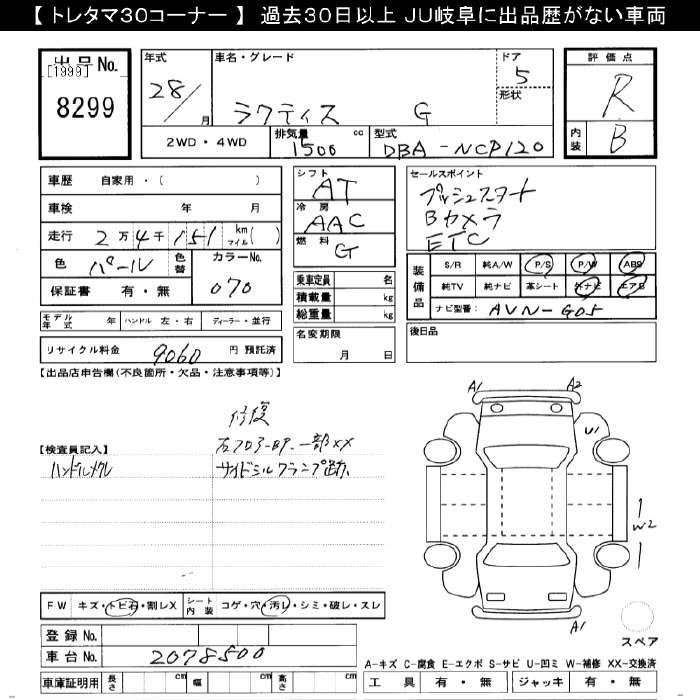 【 トレタマ30コーナー 】 過去30日以上 JU岐阜に出品歴がない車両
出品 No.
[1999]
8299
年式
28/
月
車名・グレード
ラクティス G
ドア
5
形状
評価点
R
内装
B
2WD ・ 4WD
排気量
1500
cc
型式
DBA-NCP120
車歴
自家用・( )
車検
年 月
走行
2万4千151
km
マイル( )
色
パール
色替
カラーNo.
070
保証書
有・無
シフト
AT
冷房
AAC
燃料
G
乗車定員
名
積載量
kg
総重量
kg
セールスポイント
プッシュスタート
Bカメラ
ETC
装備品
S/R 純A/W P/S P/W ABS
純TV 純ナビ 革シート 外ナビ エアB
ナビ型番: AVN-G05
モデル年式
年
ハンドル
左・右
ディーラー・並行
リサイクル料金
9060
円 預託済
名変期限
月 日
後日品
【出品店申告欄(不良箇所・欠品・注意事項等)】
修復
【検査員記入】
ハンドルメクレ
サイドシルフランジ
A1 A2
U1
W2
A1
スペア
FW
キズ・トビ石・割レX
シート内装
コゲ・穴・汚レ・シミ・破レ・スレ
登録 No.
車台 No.
2078500
車庫証明用
長さ
cm
幅
cm
高さ
cm
A-キズ C-腐食 E-エクボ S-サビ U-凹ミ W-補修 XX-交換済
工具
有・無
ジャッキ
有・無